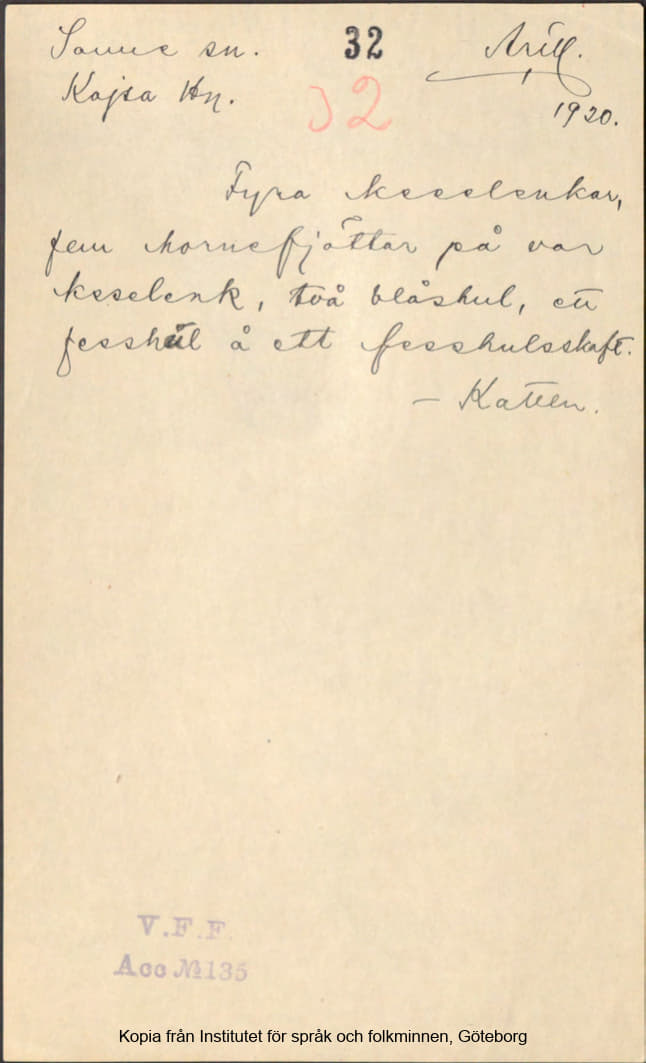 Sanne sn. 32 Arill.
Kajsa Hn. 32 1920.
Fyra kesselenkar,
fem hornefjöttar på var
kesselenk, två blåshul, ett
fesshul å ett fesshulsskaft.
– Katten.
V.F.F.
Acc №135
Kopia från Institutet för språk och folkminnen, Göteborg